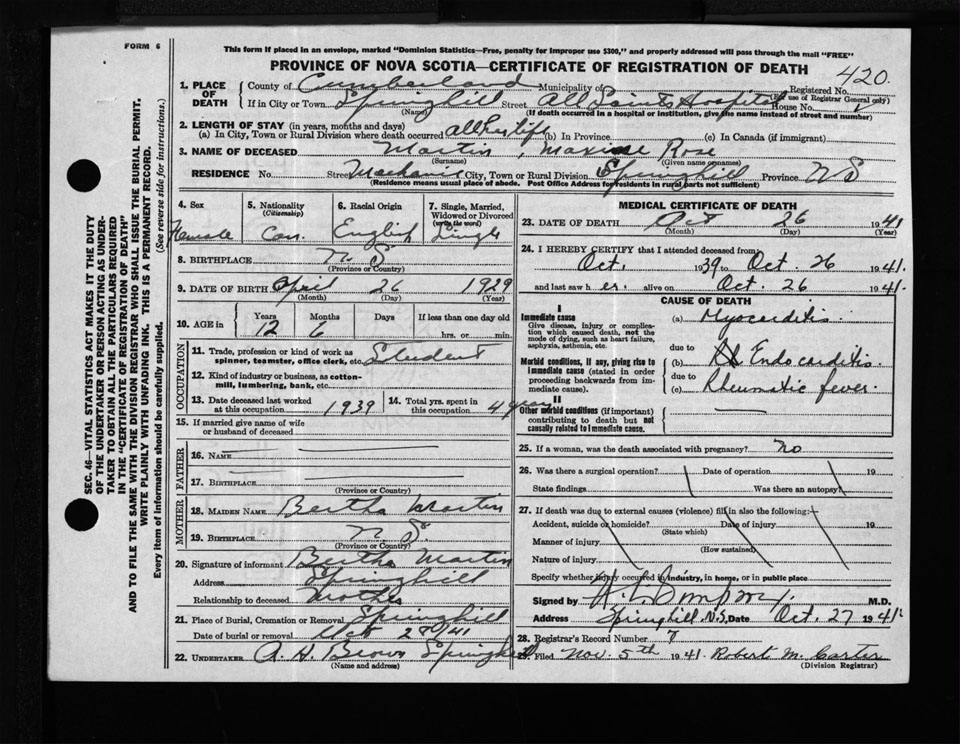 FORM 6
This form if placed in an envelope, marked "Dominion Statistics—Free, penalty for improper use $300," and properly addressed will pass through the mail "FREE"
PROVINCE OF NOVA SCOTIA—CERTIFICATE OF REGISTRATION OF DEATH
420
1. PLACE OF DEATH
County of Cumberland Municipality of
Registered No.
(For use of Registrar General only)
If in City or Town Springhill Street All Saints Hospital House No.
(Name) (If death occurred in a hospital or institution, give the name instead of street and number)
2. LENGTH OF STAY (in years, months and days)
(a) In City, Town or Rural Division where death occurred all her life (b) In Province (c) In Canada (if immigrant)
3. NAME OF DECEASED Martin, Maxine Rose
(Surname) (Given name or names)
RESIDENCE No. Street Mechanic City, Town or Rural Division Springhill Province NS
(Residence means usual place of abode. Post Office Address for residents in rural parts not sufficient)
4. Sex Female
5. Nationality (Citizenship) Can.
6. Racial Origin English
7. Single, Married, Widowed or Divorced (write the word) Single
8. BIRTHPLACE N S
(Province or Country)
9. DATE OF BIRTH April 26 1929
(Month) (Day) (Year)
10. AGE in Years 12 Months 6 Days If less than one day hrs. or min.
OCCUPATION
11. Trade, profession or kind of work as spinner, teamster, office clerk, etc. Student
12. Kind of industry or business, as cotton-mill, lumbering, bank, etc.
13. Date deceased last worked at this occupation 1939
14. Total yrs. spent in this occupation 4 years
15. If married give name of wife or husband of deceased
FATHER
16. NAME
17. BIRTHPLACE
(Province or Country)
MOTHER
18. MAIDEN NAME Bertha Martin
19. BIRTHPLACE N S.
(Province or Country)
20. Signature of informant Bertha Martin
Address Springhill
Relationship to deceased Mother
21. Place of Burial, Cremation or Removal Springhill
Date of burial or removal Oct 28/41
22. UNDERTAKER A. H. Brown Springhill
(Name and address)
MEDICAL CERTIFICATE OF DEATH
23. DATE OF DEATH Oct 26 1941
(Month) (Day) (Year)
24. I HEREBY CERTIFY that I attended deceased from:
Oct. 1939 to Oct. 26 1941.
and last saw her. alive on Oct. 26 1941.
CAUSE OF DEATH
I
Immediate cause
Give disease, injury or complication which caused death, not the mode of dying, such as heart failure, asphyxia, asthenia, etc.
(a) Myocarditis.
due to
Morbid conditions, if any, giving rise to immediate cause (stated in order proceeding backwards from immediate cause).
(b) Endocarditis.
due to
(c) Rheumatic fever.
II
Other morbid conditions (if important) contributing to death but not causally related to immediate cause.
25. If a woman, was the death associated with pregnancy? no
26. Was there a surgical operation? Date of operation 19
State findings Was there an autopsy
27. If death was due to external causes (violence) fill in also the following:
Accident, suicide or homicide? Date of injury 19
(State which)
Manner of injury
(How sustained)
Nature of injury
Specify whether injury occurred in industry, in home, or in public place
Signed by M.D.
Address Springhill. N.S. Date Oct. 27 1941.
28. Registrar's Record Number 7
29. Filed Nov. 5th 1941 Robert M. Carter
(Division Registrar)
SEC. 46—VITAL STATISTICS ACT MAKES IT THE DUTY
OF THE UNDERTAKER OR PERSON ACTING AS UNDER-
TAKER TO OBTAIN ALL THE PARTICULARS REQUIRED
IN THE "CERTIFICATE OF REGISTRATION OF DEATH"
AND TO FILE THE SAME WITH THE DIVISION REGISTRAR WHO SHALL ISSUE THE BURIAL PERMIT.
WRITE PLAINLY WITH UNFADING INK. THIS IS A PERMANENT RECORD.
Every item of information should be carefully supplied. (See reverse side for instructions.)